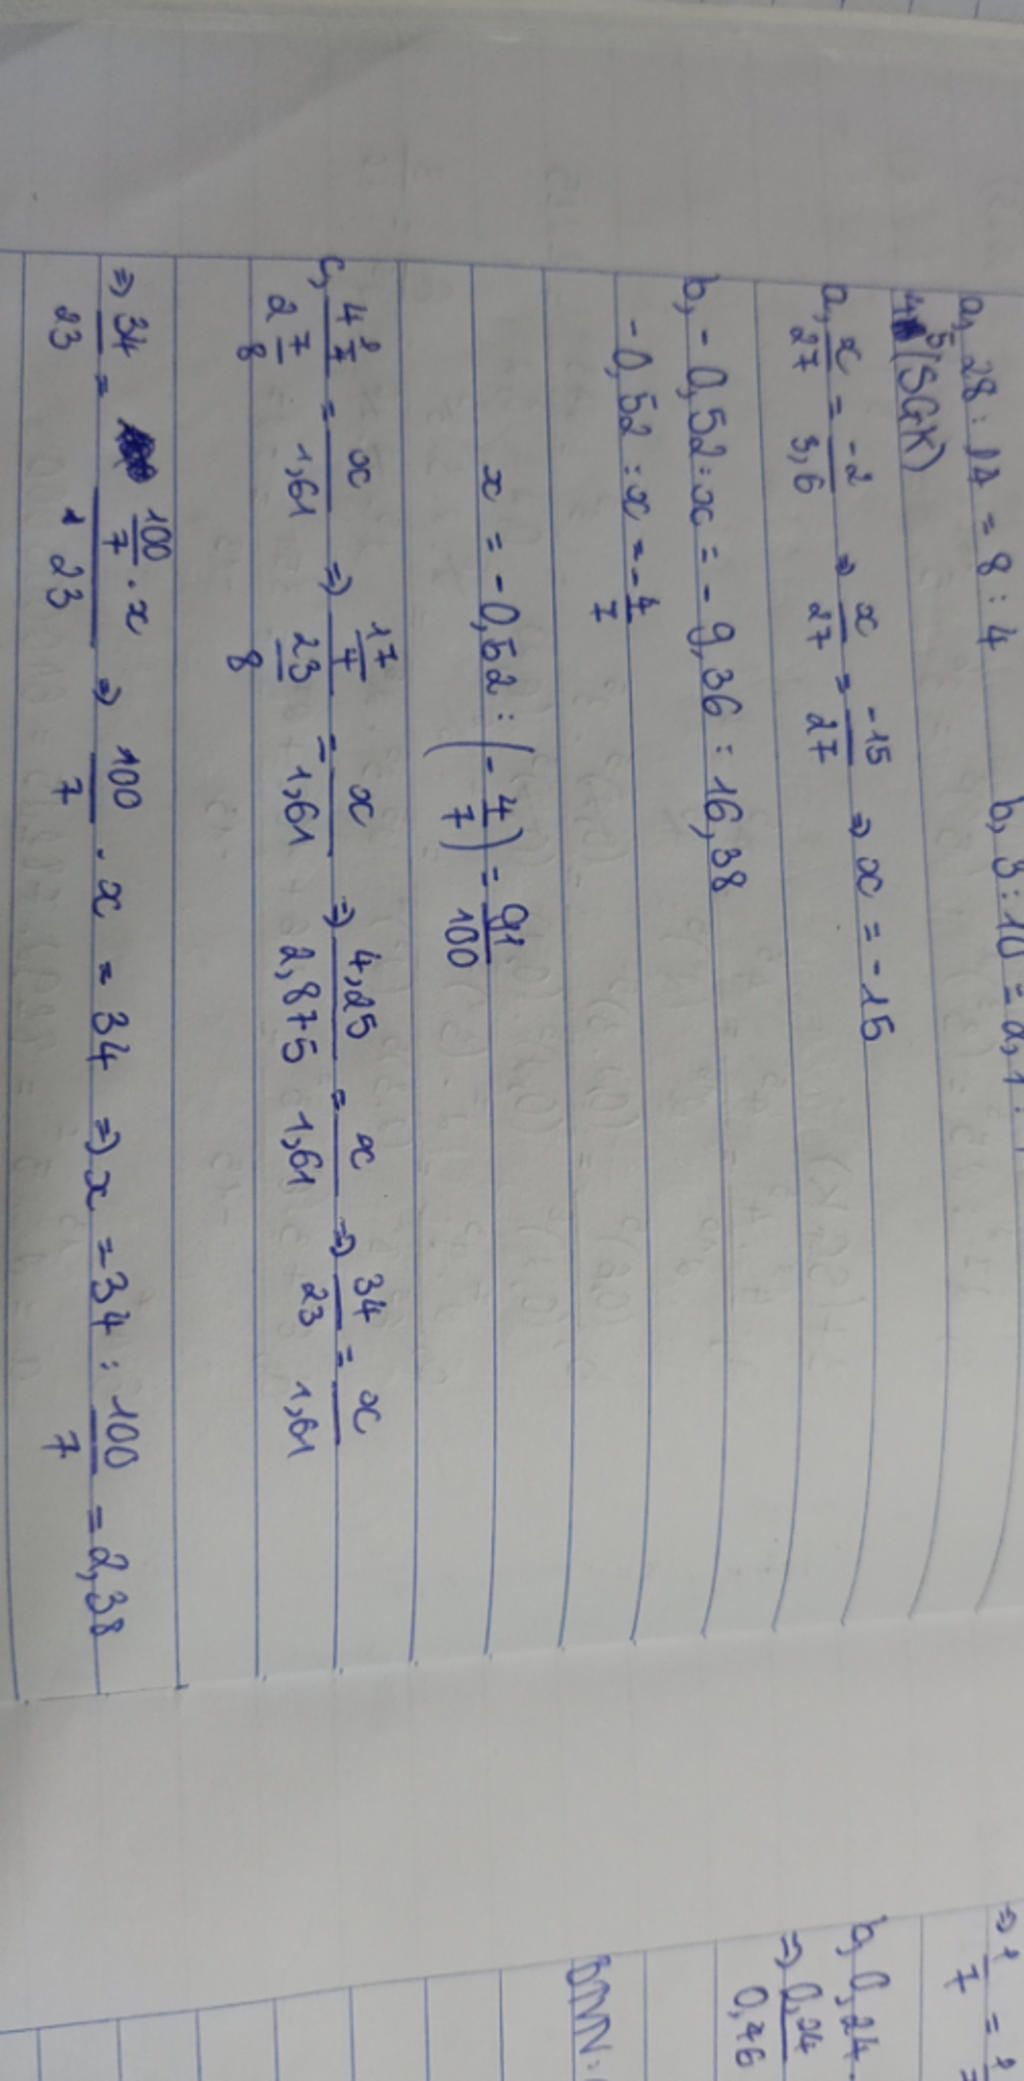 a, 28 : 14 = 8 : 4 b, 3 : 10 = 2,1 :
5/(SGK)
a, x/27 = -2/3,6 => x/27 = -15/27 => x = -15
b, - 0,52 : x = - 9,36 : 16,38
- 0,52 : x = - 4/7
x = - 0,52 : (- 4/7) = 91/100
c, 4 1/4 / 2 7/8 = x/1,61 => 17/4 / 23/8 = x/1,61 => 4,25/2,875 = x/1,61 => 34/23 = x/1,61
=> 34/23 = 100/7 . x / 23 => 100/7 . x = 34 => x = 34 : 100/7 = 2,38
=> 1/7 =
b, 0,24
=> 0,24/0,46